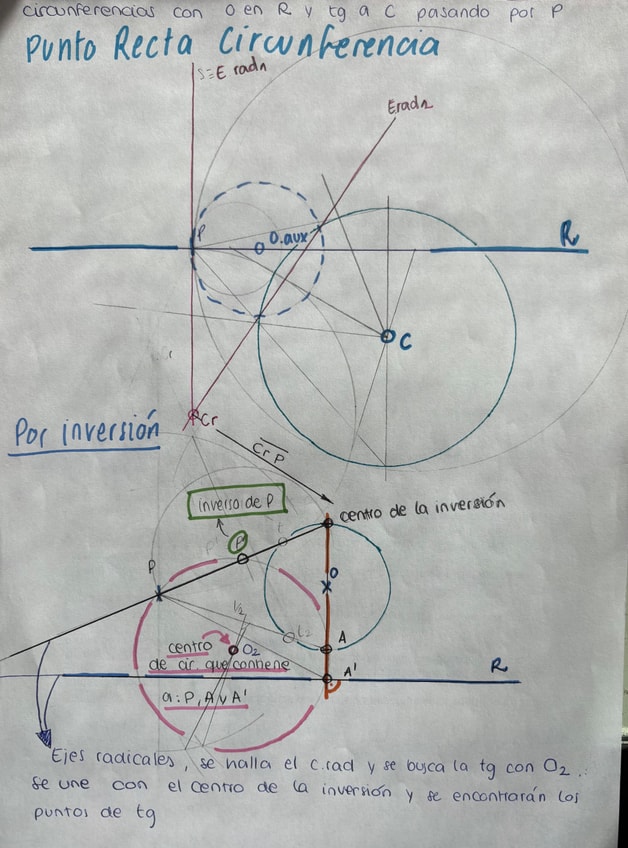 circunferencias con O en R y tg a C pasando por P
Punto Recta Circunferencia
S=E rad1
Erad2
P
O.aux
R
C
Cr
Por inversión
Cr P
inverso de P
centro de la inversión
P
P'
O
t2
A
centro
O2
de cir. que contiene
a: P, A y A'
A'
R
Ejes radicales, se halla el c.rad y se busca la tg con O2.
se une con el centro de la inversión y se encontrarán los
puntos de tg